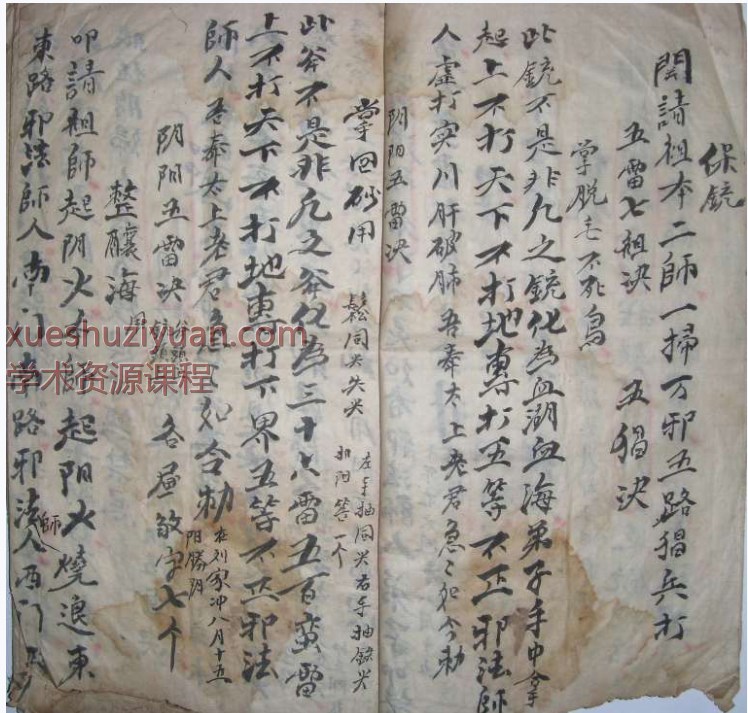 保銃
開請祖本二師一掃万邪五路猖兵打
五雷七祖决 五猖决
掌脱毛不死鳥
此銃不是非凡之銃化為血湖血海弟子手中拿
起上不打天下不打地專打五等不正邪法師
人虛打实川肝破肺吾奉太上老君急〻如令勅
阴阳五雷决
掌回砂用
鬆同尖失尖
左手抽同尖右手抽鉄尖
和阳筶一个
此斧不是非凡之斧化為三十六雷五百蛮雷
上不打天下不打地專打下界五等不正邪法
師人吾奉太上老君急〻如令勅
在刘家冲八月十五
阳勝阴
阴阳五雷决
各屋敬字七个
整釀海
叩請祖師起阴火本師起阳火燒退東
東路邪法師人南门南路邪法師人西门
xueshuziyuan.com
学术资源课程